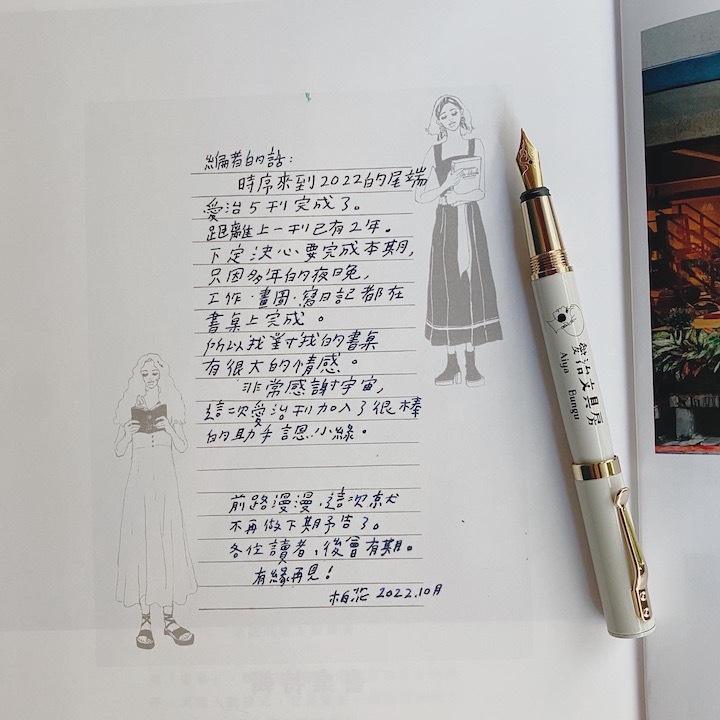 編者的話：
時序來到2022的尾端
愛治5刊完成了。
距離上一刊已有2年。
下定決心要完成本期，
只因多年的夜晚，
工作．畫圖．寫日記都在
書桌上完成。
所以我對我的書桌
有很大的情感。
非常感謝宇宙，
這次愛治刊加入了很棒
的助手認小緣。
前路漫漫，這次就
不再做下期予告了。
各位讀者，後會有期。
有緣再見！
2022.10月
愛治文具房
Aiya Bungu